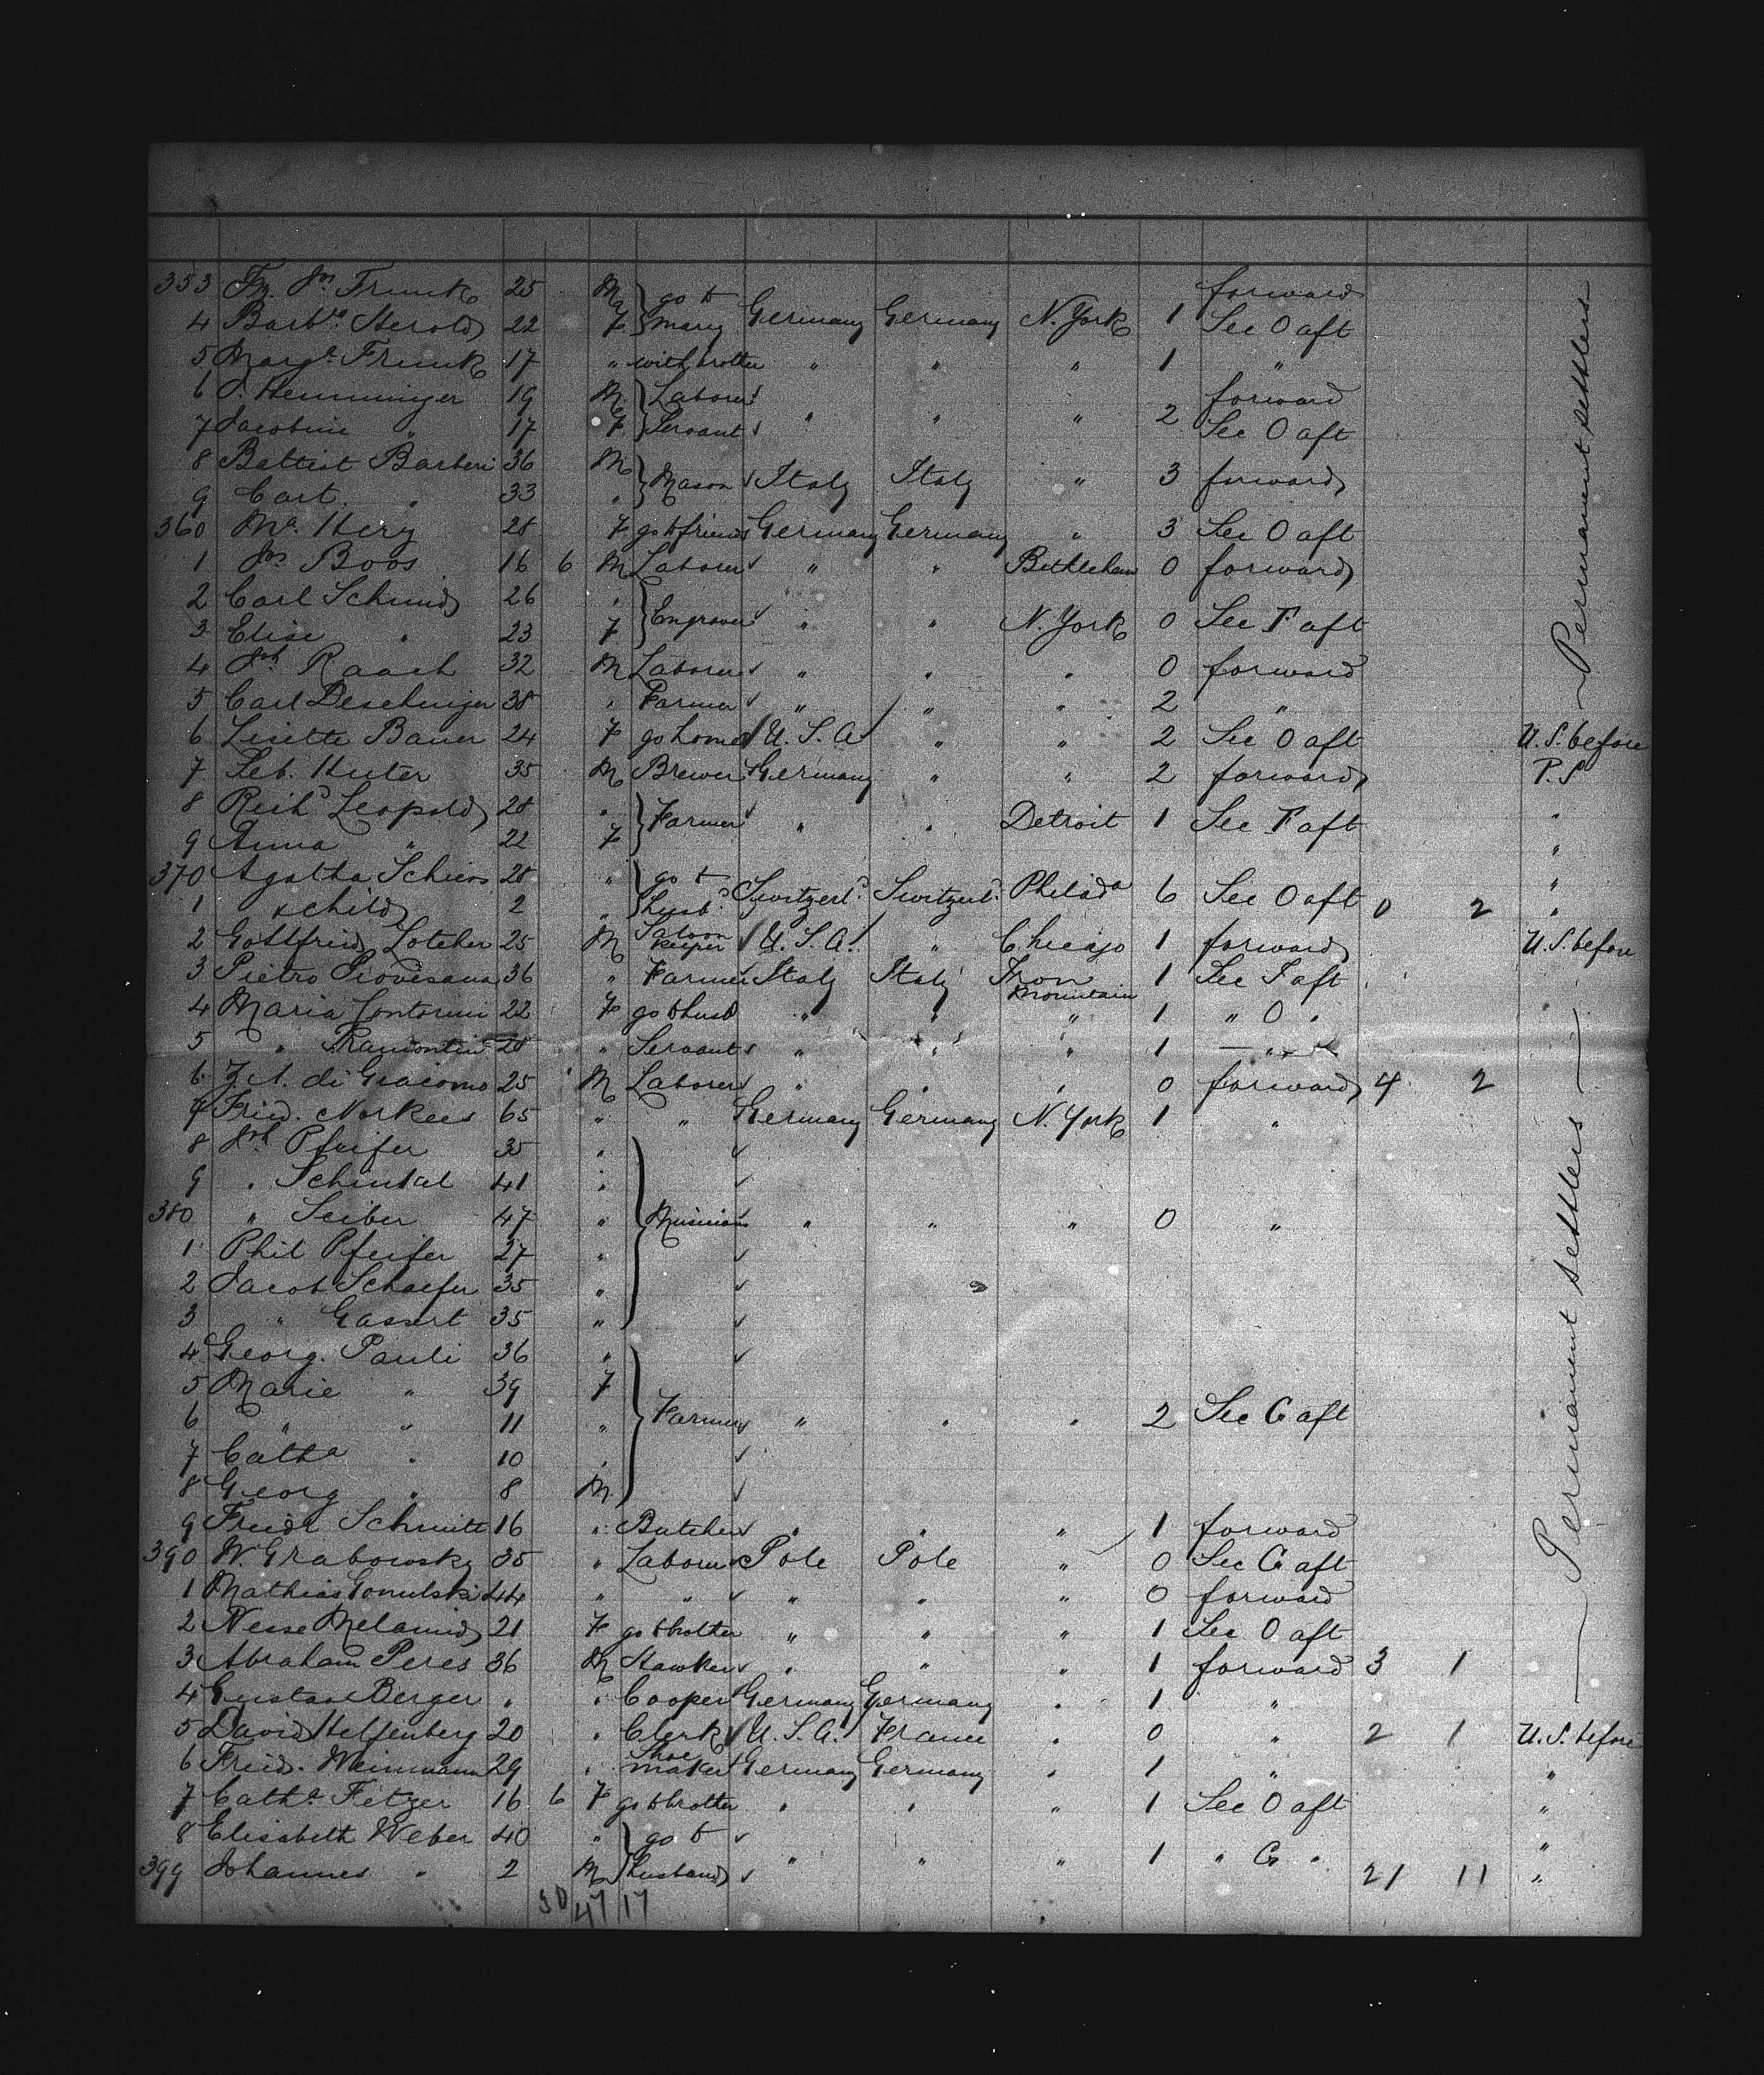 353 Fr. Jos Frunk 25 M } go to forward
4 Barb.a Herold 22 F } mary Germany Germany N. York 1 See O aft
5 Marg.t Frunk 17 " with brother " " " 1 "
6 J. Hemminger 19 M } Laborer forward
7 Jacobine " 17 F } Servant " " " 2 See O aft
8 Battist Barberi 36 M
9 Cart. " 33 " } Mason Italy Italy " 3 forward
360 M.a Herz 28 F go to friends Germany Germany " 3 See O aft
1 Jos Boos 16 6 M Laborer " " Bethlehem 0 forward
2 Carl Schmid 26 "
3 Elise " 23 F } Engraver " " N. York 0 See F aft
4 Joh Raach 32 M Laborer " " " 0 forward
5 Carl Deschinger 38 " Farmer " " " 2 "
6 Lisette Bauer 24 F go home U. S. A " " 2 See O aft U. S. before
7 Seb. Huter 35 M Brewer Germany " " 2 forward P. S
8 Reihd Leopold 28 " } Farmer " " Detroit 1 See F aft "
9 Anna " 22 F "
370 Agatha Schiers 28 " } go to "
1 & child 2 " } husbd Switzerld Switzerld Philada 6 See O aft 0 2 "
2 Gottfried Lotcher 25 M Saloon keeper U. S. A. " Chicago 1 forward U. S. before
3 Pietro Piovesana 36 " Farmer Italy Italy Iron Mountain 1 See F aft
4 Maria Contorini 22 F go to husb " " " 1 " O "
5 " Tramontin 28 " Servant " " " 1 — " —
6 J. A. di Giacomo 25 M Laborer " " " 0 forward 4 2
7 Fried. Norkees 65 " " Germany Germany N. York 1 "
8 Joh Pfeifer 35 "
9 " Schintal 41 "
380 " Seiber 47 " Musicians " " " 0 "
1 Phil Pfeifer 27 "
2 Jacob Schaefer 35 "
3 " Gassert 35 "
4 Georg. Pauli 36 "
5 Marie " 39 F
6 " " 11 " Farmer " " " 2 See G aft
7 Catha " 10 "
8 Georg " 8 M
9 Friedr Schmitt 16 " Butcher " " " 1 forward
390 W. Grabowsky 35 " Laborer Pole Pole " 0 See G aft
1 Mathias Gomulski 44 " " " " " 0 forward
2 Nesse Melamid 21 F go to brother " " " 1 See O aft
3 Abraham Peres 36 M Hawker " " " 1 forward 3 1
4 Gustav Berger " " Cooper Germany Germany " 1 "
5 David Helfenberg 20 " Clerk U. S. A. France " 0 " 2 1 U. S. before
6 Fried. Weinmann 29 " Shoe maker Germany Germany " 1 " "
7 Cath.a Fetzer 16 6 F go to brother " " " 1 See O aft "
8 Elisabeth Weber 40 " } go to "
399 Johannes " 2 M } husband " " " 1 " G " 21 11 "
30 47 17
Permanent settlers
Permanent settlers